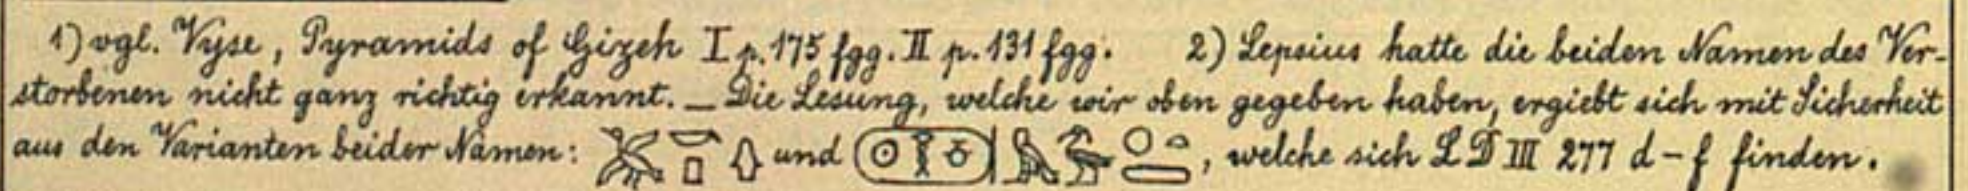 1) vgl. Vyse, Pyramids of Gizeh I p. 175 fgg. II p. 131 fgg. 2) Lepsius hatte die beiden Namen des Ver-
storbenen nicht ganz richtig erkannt. — Die Lesung, welche wir oben gegeben haben, ergiebt sich mit Sicherheit
aus den Varianten beider Namen: und , welche sich LD III 277 d–f finden.